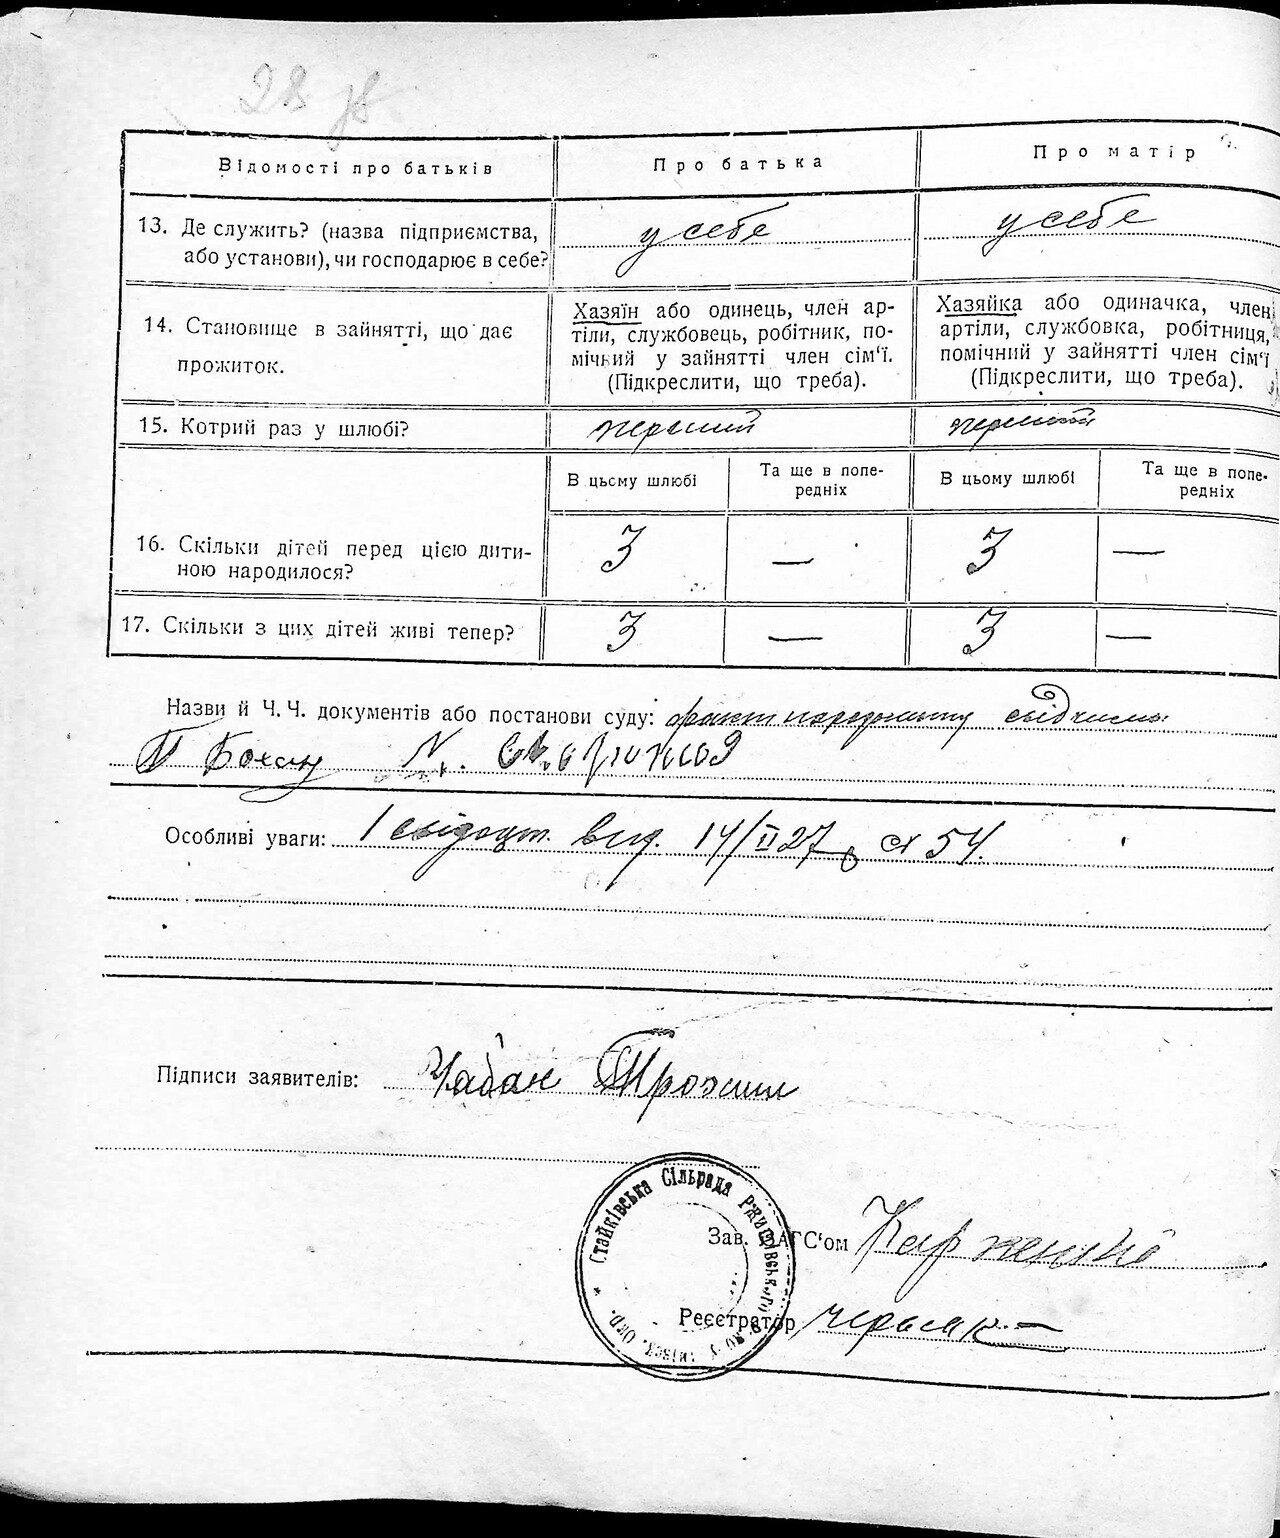 28 зв.
Відомості про батьків
Про батька
Про матір
13. Де служить? (назва підприємства,
або установи), чи господарює в себе?
у себе
у себе
14. Становище в зайнятті, що дає
прожиток.
Хазяїн або одинець, член ар-
тіли, службовець, робітник, по-
мічний у зайнятті член сім'ї.
(Підкреслити, що треба).
Хазяйка або одиначка, член
артіли, службовка, робітниця,
помічний у зайнятті член сім'ї
(Підкреслити, що треба).
15. Котрий раз у шлюбі?
перший
перший
В цьому шлюбі
Та ще в попе-
редніх
В цьому шлюбі
Та ще в попе-
редніх
16. Скільки дітей перед цією дити-
ною народилося?
3
—
3
—
17. Скільки з цих дітей живі тепер?
3
—
3
—
Назви й Ч. Ч. документів або постанови суду: факт народження
Особливі уваги: 1 свідоцт. вид. 14/II 27 54.
Підписи заявителів: Чабан Трохим
Стайківська Сільрада Ржищівського
Окр.
Зав. ЗАГС'ом
Реєстратор Черняк